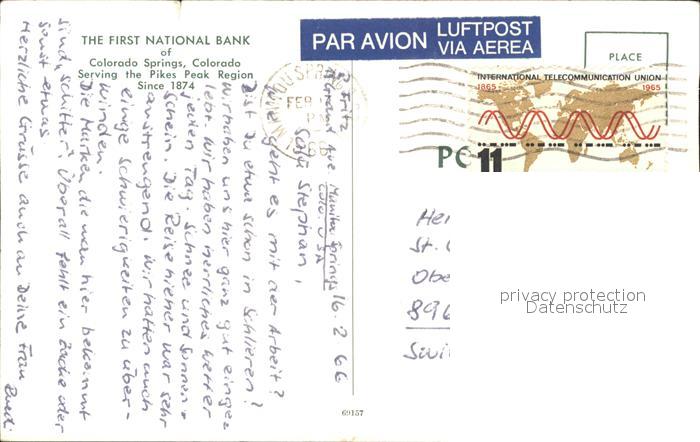 THE FIRST NATIONAL BANK
of
Colorado Springs, Colorado
Serving the Pikes Peak Region
Since 1874
PAR AVION
LUFTPOST
VIA AEREA
PLACE
INTERNATIONAL TELECOMMUNICATION UNION
1865 1965
11
FEB
Ave Manitou Springs 16.2.66
Colo. USA
Salü Stephan,
Wie geht es mit der Arbeit?
Bist Du etwa schon in Schlieren?
Wir haben uns hier ganz gut einge-
lebt. Wir haben herrliches Wetter
jeden Tag. Schnee und Sonnen-
schein. Die Reise hieher war sehr
anstrengend. Wir hatten auch
einige Schwierigkeiten zu über-
winden.
Die Marken die man hier bekommt
sind "schitter". Überall fehlt ein Zacke oder
sonst etwas.
Herzliche Grüsse auch an Deine Frau
Ruedi
St.
Obe
896
69157
privacy protection
Datenschutz